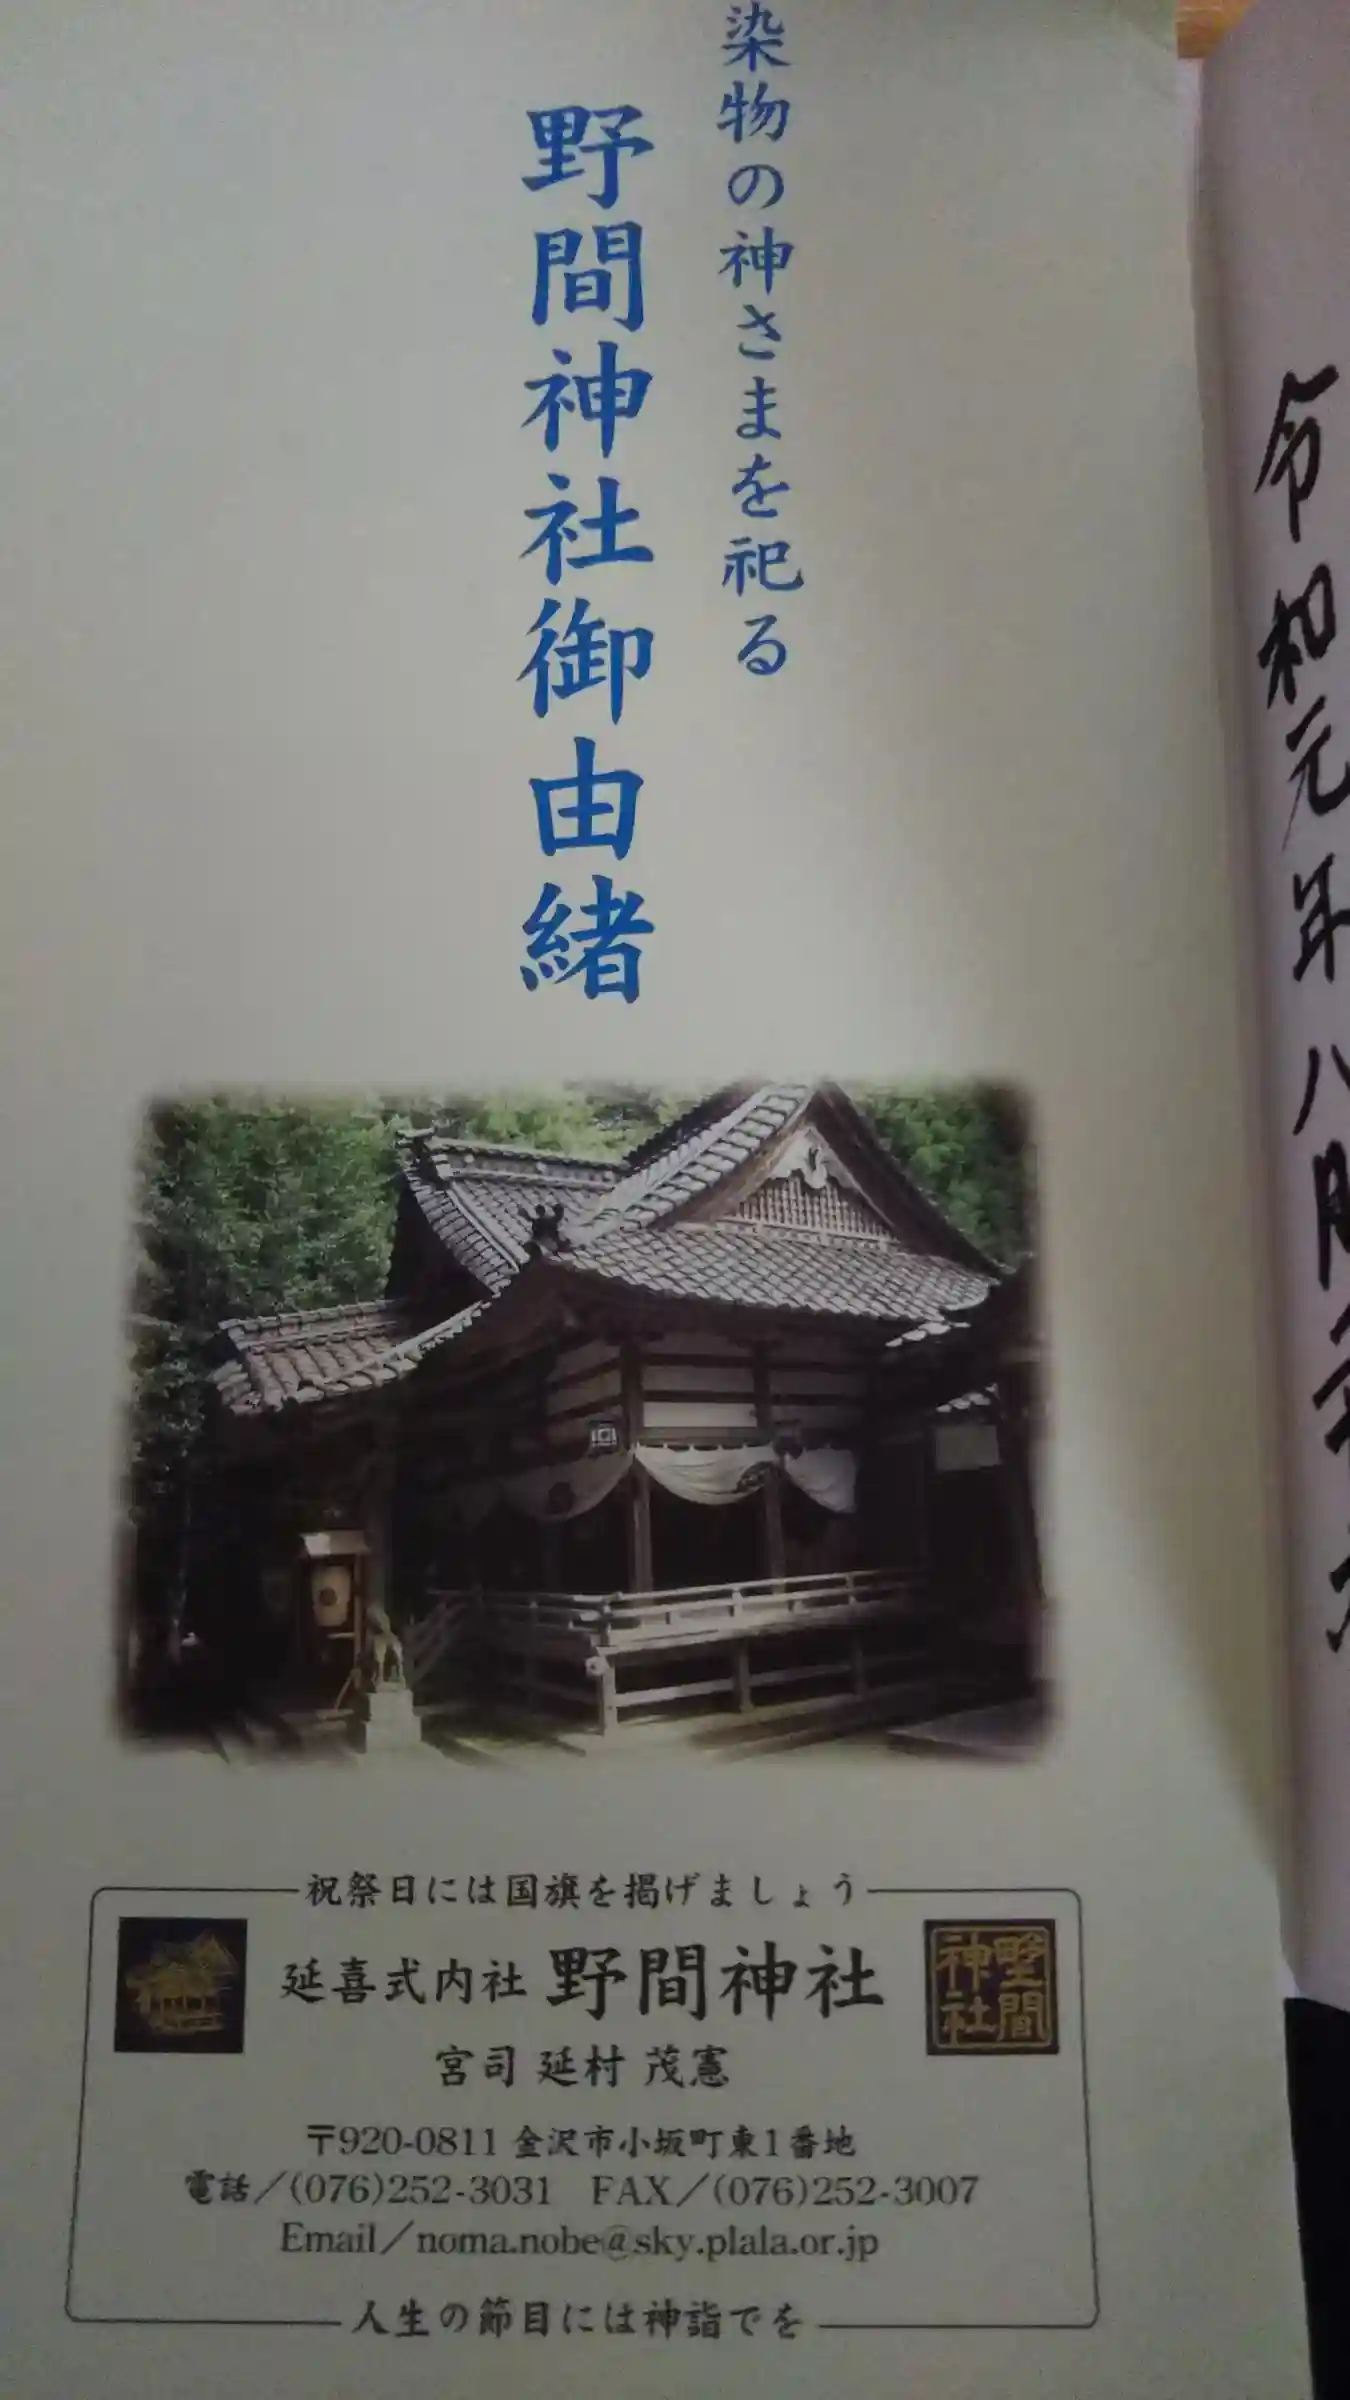 令和元年八月
染物の神さまを祀る
野間神社御由緒
祝祭日には国旗を掲げましょう
延喜式内社 野間神社
野間神社
宮司 延村 茂憲
〒920-0811 金沢市小坂町東1番地
電話／(076)252-3031 FAX／(076)252-3007
Email／noma.nobe@sky.plala.or.jp
人生の節目には神詣でを